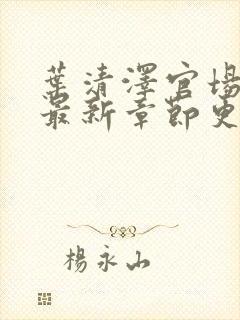 葉清澤官場
最新章節更
楊永山